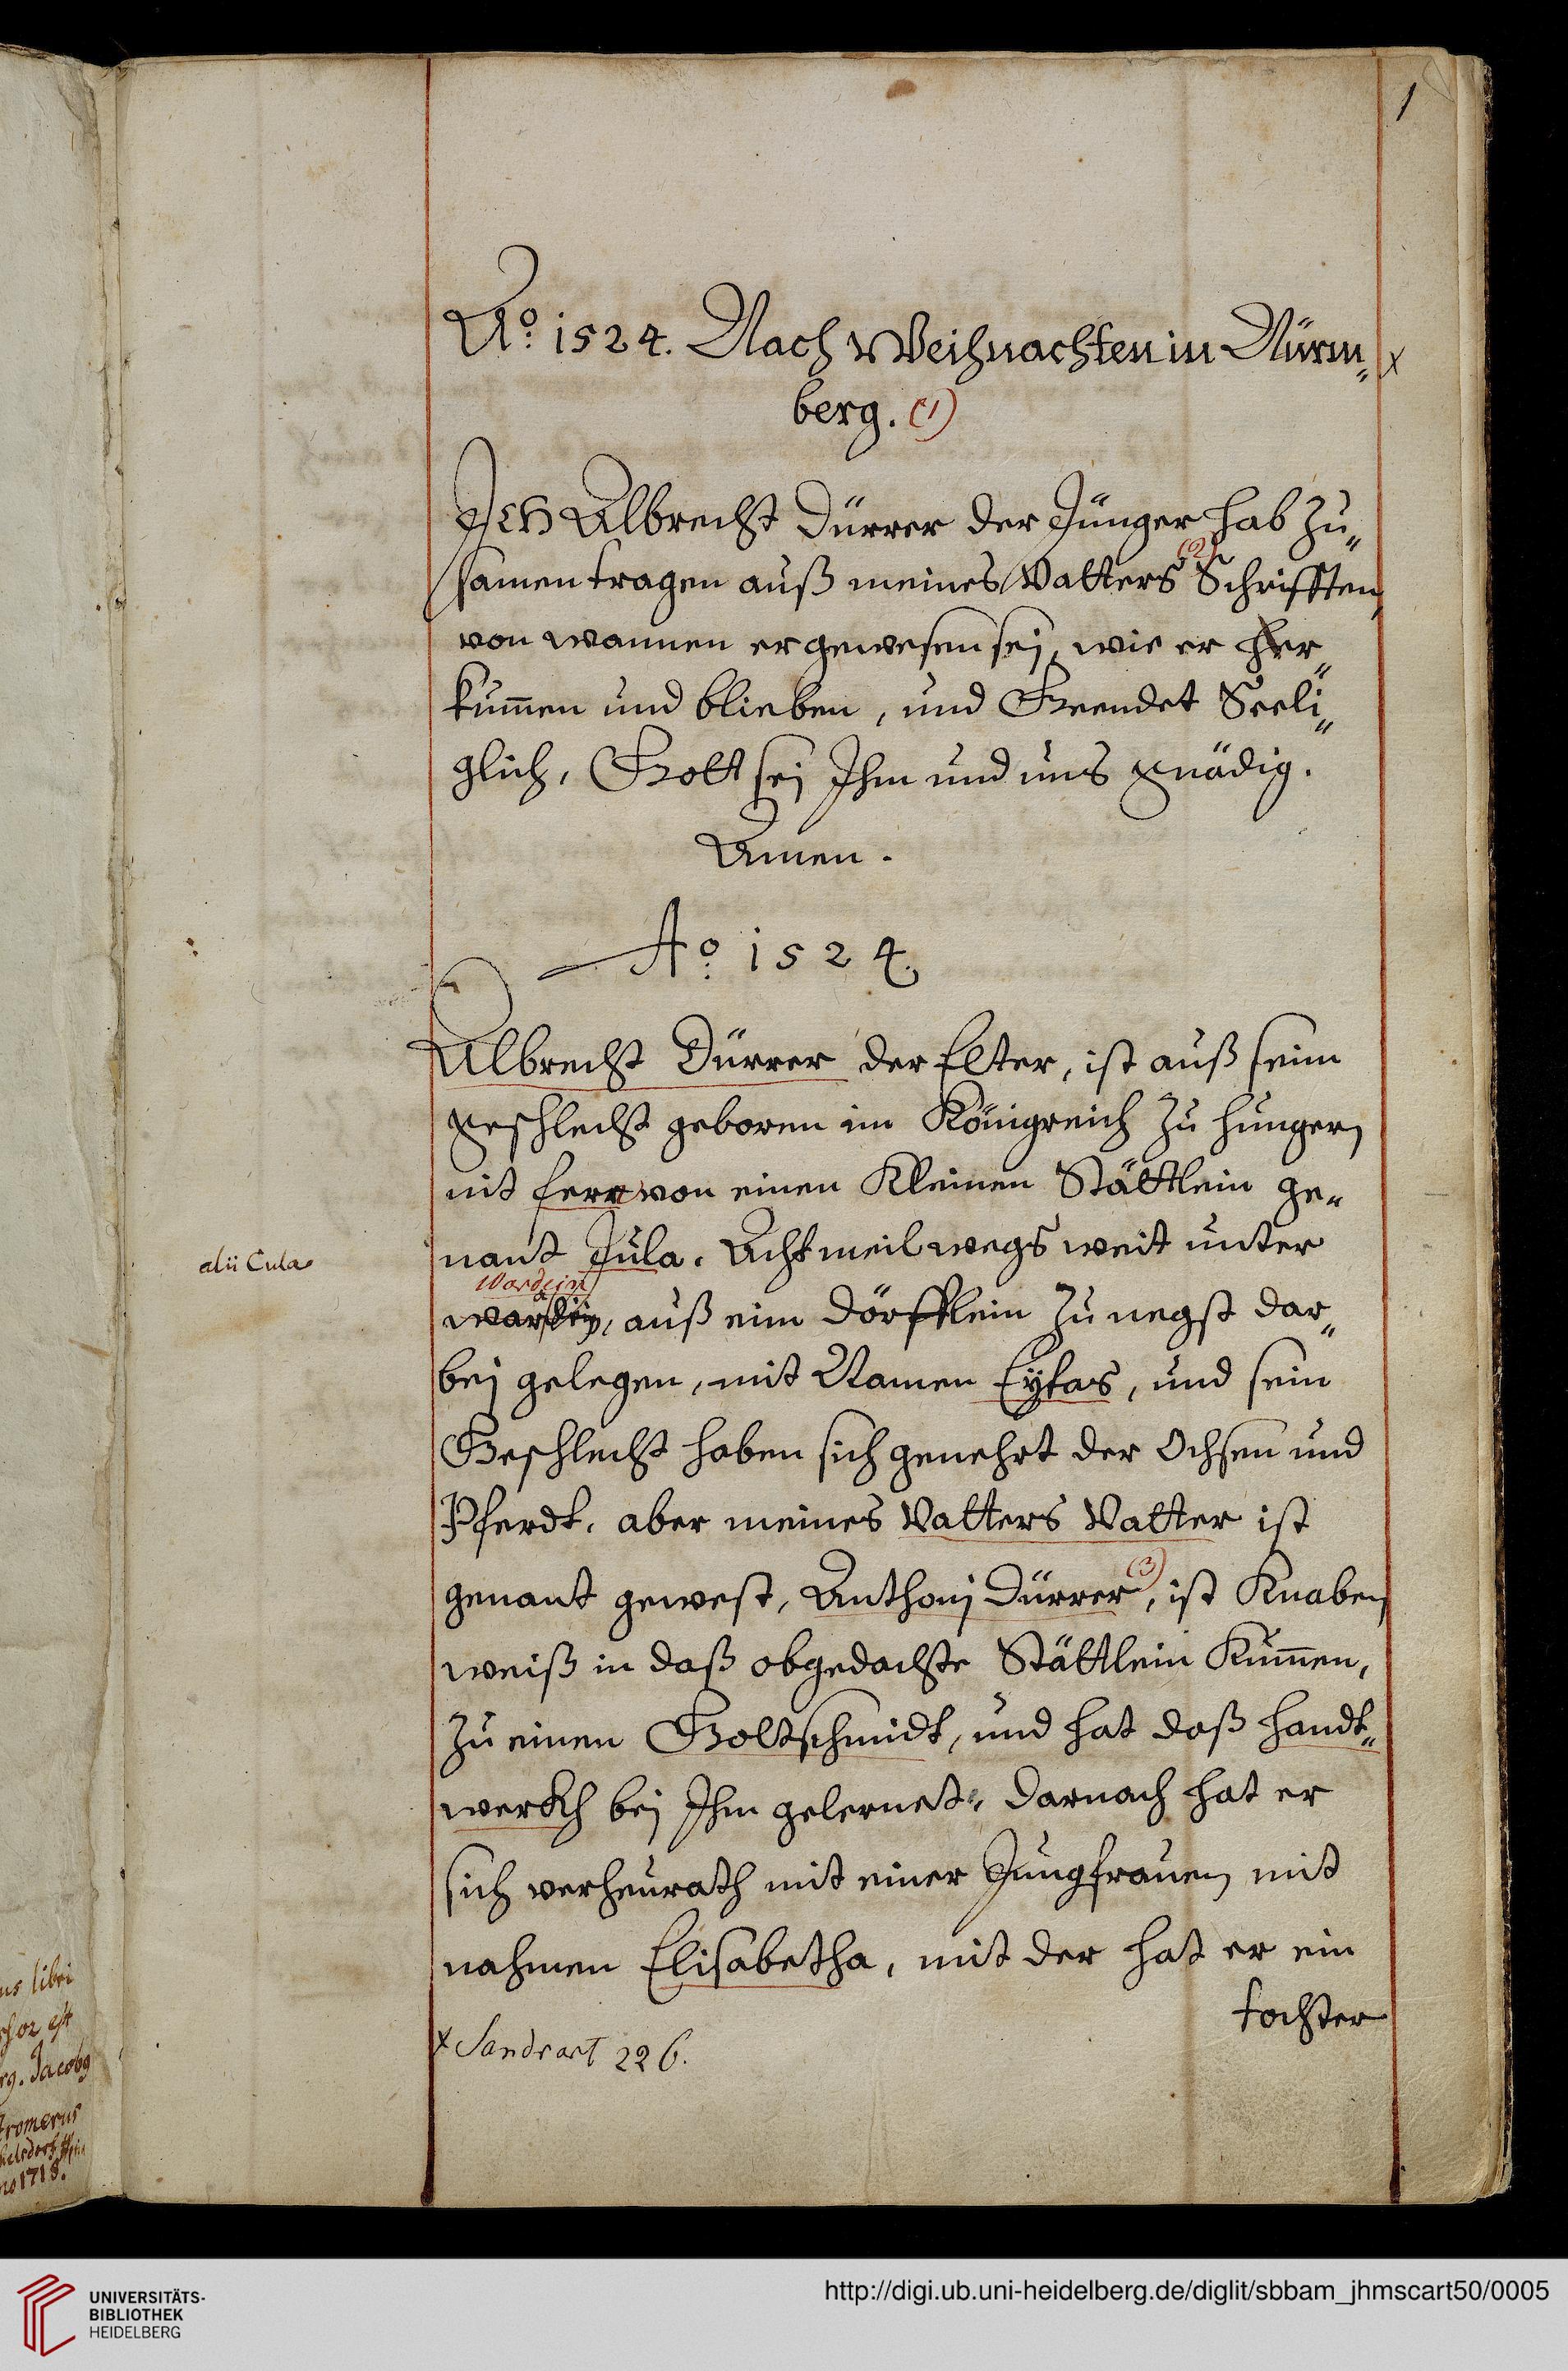 1
Ao. 1524. Nach Weihnachten in Nürm„ x
berg. (1)
Ich Albrecht Dürrer der Jünger hab zu„
samen tragen auß meines Vatters (2) Schrifften,
von wannen er gewesen sej, wie er her„
kum̄en und blieben, und Geendet Seeli„
glich, Gott sej Ihm und uns gnädig.
Amen.
Ao. 1524.
Albrecht Dürrer der Elter, ist auß seim
geschlecht geboren im Königreich zu hungern
nit ferr von einen Kleinen Stättlein ge„
alii Cula
nant Jula. Acht meil wegs weit unter
Wardein
wardein, auß eim dörfflein zu negst dar„
bej gelegen, mit Namen Eytas, und sein
Geschlecht haben sich genehrt der Ochsen und
Pferdt. aber meines Vatters Vatter ist
genant gewest, Anthonj Dürrer (3), ist Knaben
weiß in daß obgedachte Stättlein Kum̄en,
zu einen Goltschmidt, und hat daß handt„
werckh bej Ihm gelernet, darnach hat er
sich verheurath mit einer Jungfrauen mit
nahmen Elisabetha, mit der hat er ein
tochter
x Sandrart 226.
us libri
est
rg. Jacobg
romerus
no 1718.
UNIVERSITÄTS-
BIBLIOTHEK
HEIDELBERG
http://digi.ub.uni-heidelberg.de/diglit/sbbam_jhmscart50/0005